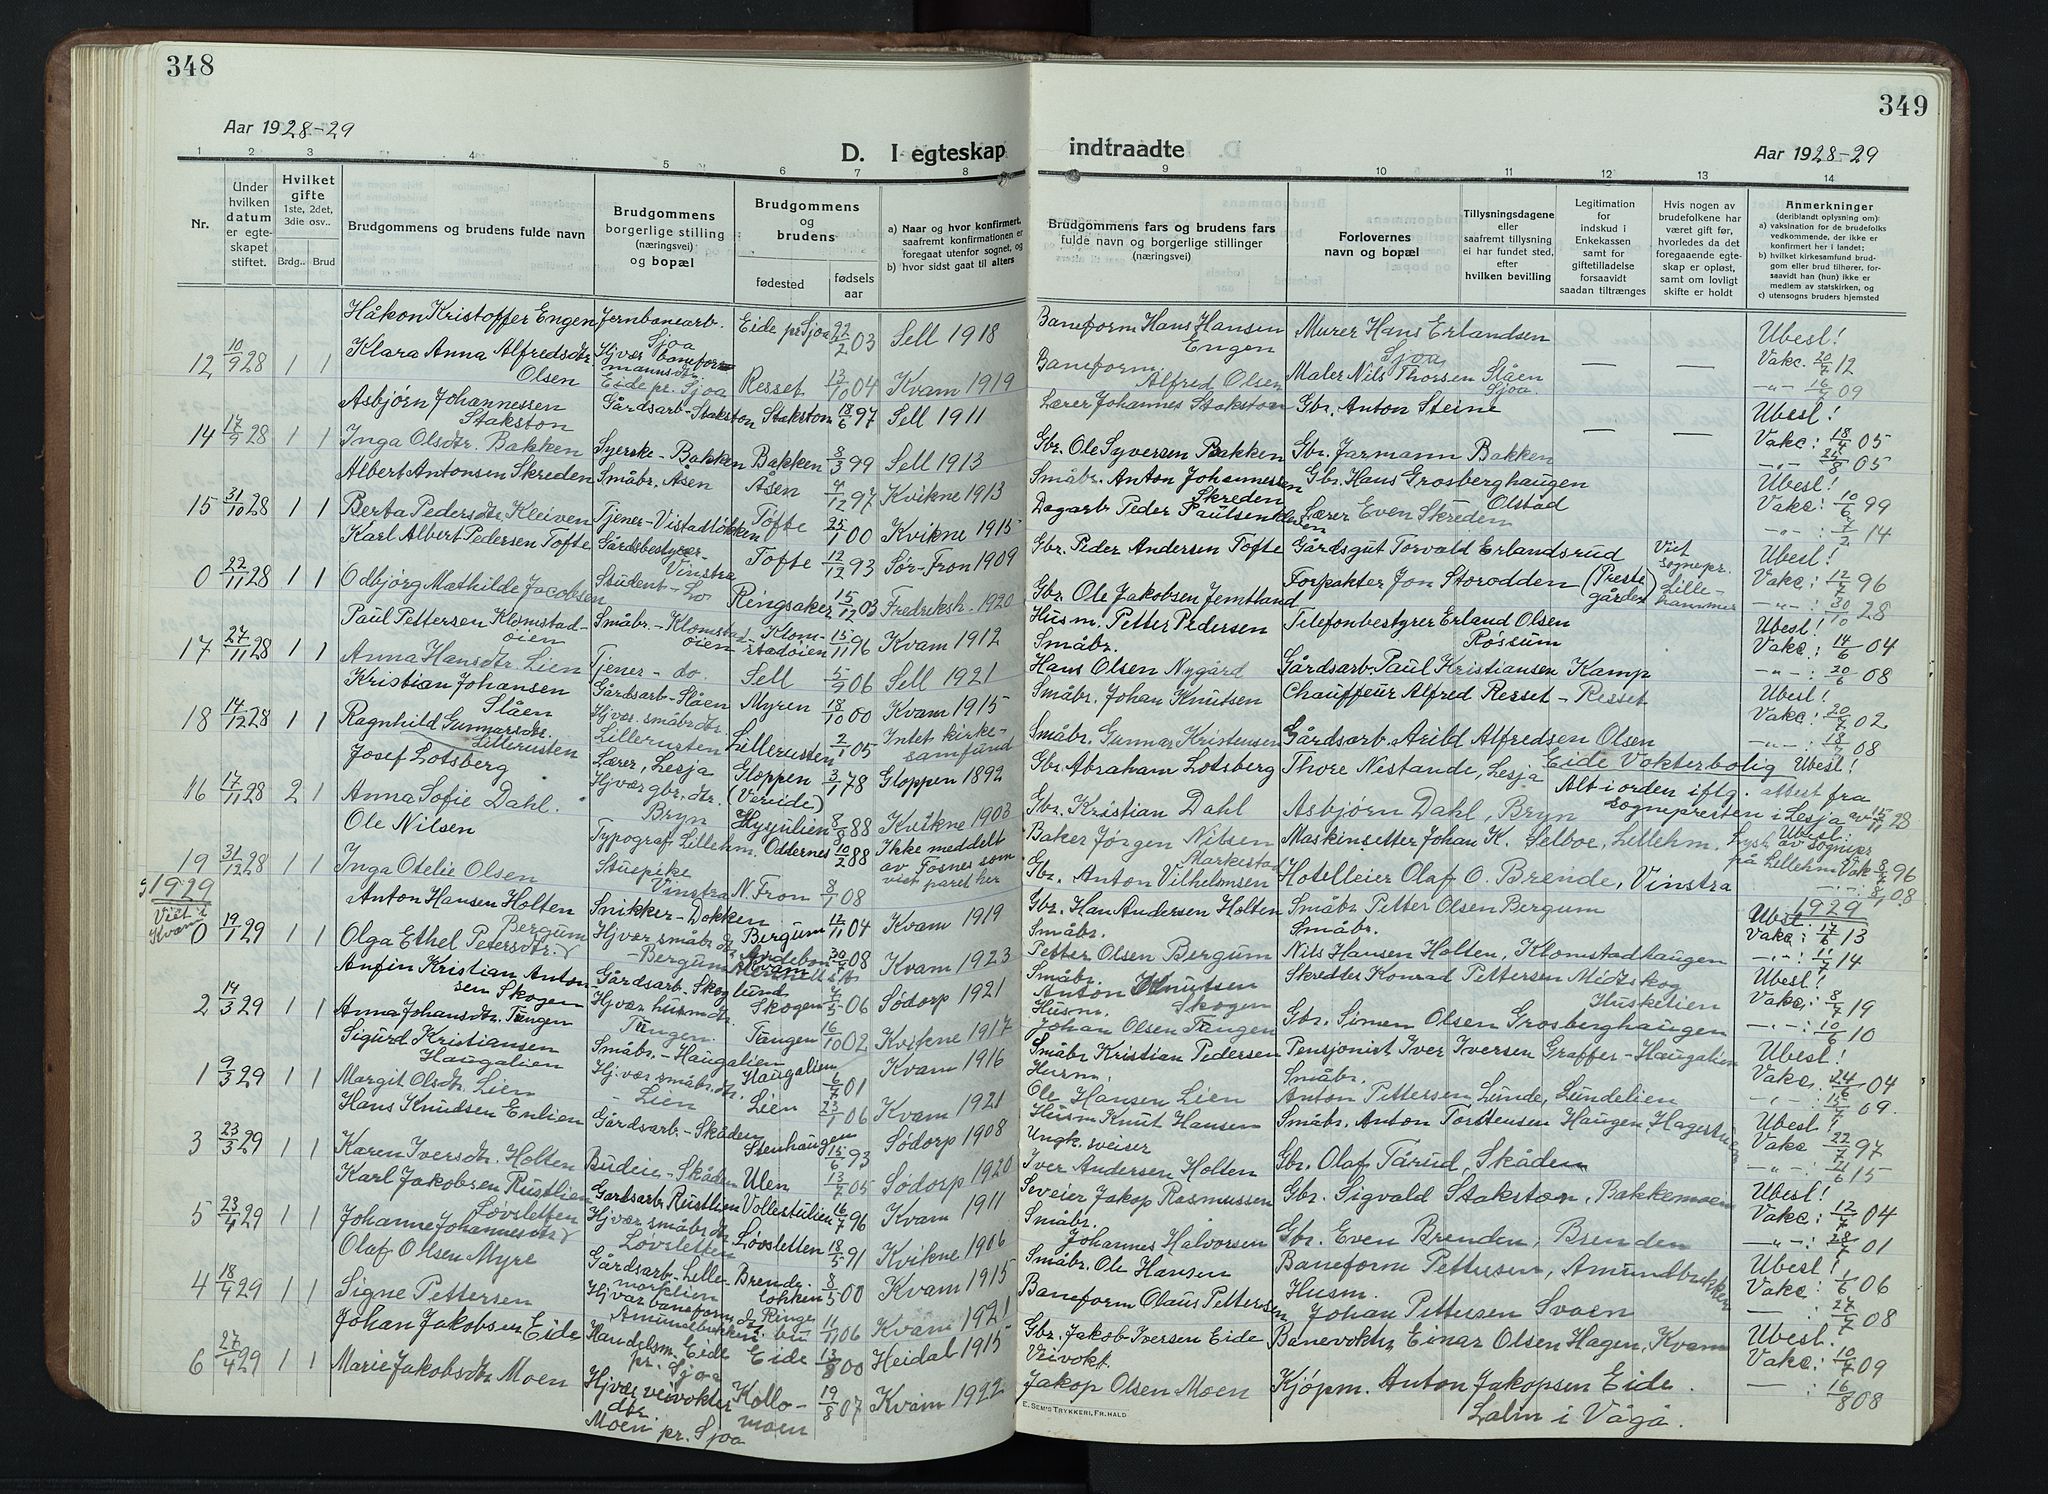 348
349
Aar 1928-29
Aar 1928-29
D. I egteskap indtraadte
1 2 3 4 5 6 7 8 9 10 11 12 13 14
Nr.
Under hvilken datum er egteskapet stiftet.
Hvilket gifte 1ste, 2det, 3die osv..
Brdg.. Brud
Brudgommens og brudens fulde navn
Brudgommens borgerlige stilling (næringsvei) og bopæl
Brudgommens og brudens
fødested
fødselsaar
a) Naar og hvor konfirmert, saafremt konfirmationen er foregaat utenfor sognet, og
b) hvor sidst gaat til alters
Brudgommens fars og brudens fars fulde navn og borgerlige stillinger (næringsvei)
Forlovernes navn og bopæl
Tillysningsdagene eller saafremt tillysning ei har fundet sted, efter hvilken bevilling
Legitimation for indskud i Enkekassen samt for giftetilladelse forsaavidt saadan tiltrænges
Hvis nogen av brudefolkene har været gift før, hvorledes da det foregaaende egteskap er opløst, samt om lovligt skifte er holdt
Anmerkninger (deriblandt oplysning om):
a) vaksination for de brudefolks vedkommende, der ikke er konfirmert her i landet;
b) hvilket kirkesamfund brudgom eller brud tilhører, forsaavidt han (hun) ikke er medlem av statskirken, og
c) utensogns bruders hjemsted
Håkon Kristoffer Engen Jernbanearb. Sjoa Eide pr Sjoa 22/2 03 Sell 1918 Baneform Hans Hansen Engen Murer Hans Erlandsen Sjoa Ubesl!
12 10/9 28 1 1 Klara Anna Alfredsdtr. Olsen Hjvær baneformannsdtr Eide pr. Sjoa Resset 13/10 04 Kvam 1919 Baneform. Alfred Olsen Maler Nils Thorsen Slåen Sjoa. — — Vakc. 20/7 12
-"- 16/7 09
Asbjørn Johannessen Stakston Gårdsarb-Stakston Stakston 18/6 97 Sell 1911 Lærer Johannes Stakston Gbr. Anton Steine Ubesl!
14 17/9 28 1 1 Inga Olsdtr. Bakken Syerske-Bakken Bakken 8/3 99 Sell 1913 Gbr. Ole Syversen Bakken Gbr. Jarmann Bakken — — Vakc: 18/4 05
-"- 25/8 05
Albert Antonsen Skreden Småbr. Åsen Åsen 4/12 97 Kvikne 1913 Småbr. Anton Johannessen Skreden Gbr. Hans Grosberghaugen Olstad Ubesl!
15 31/10 28 1 1 Berta Pedersdtr Kleiven Tjener-Vistadløkken Tofte 25/1 00 Kvikne 1915 Dagarb Peder Paulsen Kleiven Lærer Even Skreden Vakc: 10/6 99
" : 7/2 14
Karl Albert Pedersen Tofte Gårdsbestyrer-Vinstra Tofte 12/12 93 Sør-Fron 1909 Gbr. Peder Andersen Tofte Gårdsgut Torvald Erlandsrud Viet sognepr. Lillehammer Ubesl!
0 22/11 28 1 1 Odbjørg Mathilde Jacobsen Student-Lo Ringsaker 15/12 03 Fredriksh. 1920 Gbr. Ole Jakobsen Jemtland Forpakter Jon Storodden (Prestegården) Vakc: 12/7 96
-"- 30/10 28
Paul Pettersen Klomstadøien Småbr.-Klomstadøien Klomstadøien 15/11 96 Kvam 1912 Husm. Petter Pedersen Telefonbestyrer Erland Olsen Røssum Ubesl!
17 27/11 28 1 1 Anna Hansdtr. Lien Tjener- do. Sell 5/9 06 Sell 1921 Småbr. Hans Olsen Nygård Gårdsarb. Paul Kristiansen Kamp Vakc: 14/6 04
-"- : 20/6 08
Kristian Johansen Slåen Gårdsarb-Slåen Myren 18/10 00 Kvam 1915 Småbr. Johan Knutsen Chauffeur Alfred Resset-Resset Ubesl!
18 14/12 28 1 1 Ragnhild Gunnarsdtr. Lillerusten Hjvær. småbr.dtr. Lillerusten Lillerusten 2/1 05 Intet kirkesamfund Småbr. Gunnar Kristensen Gårdsarb. Arild Alfredsen Olsen Eide Vokterbolig Vakc: 20/7 02
-"- : 18/7 08
Josef Lotsberg Lærer, Lesja Gloppen (Vereide) 3/1 78 Gloppen 1892 Gbr. Abraham Lotsberg Thore Nestande, Lesja Ubesl!
16 17/11 28 2 1 Anna Sofie Dahl. Hjvær gbr.dtr. Bryn Hysjulien 8/8 88 Kvikne 1903 Gbr. Kristian Dahl Asbjørn Dahl, Bryn Alt i orden iflg. attest fra sognepresten i Lesja av 15/11 28
Ole Nilsen Typograf Lillehm. Oddernes 10/2 88 Ikke meddelt av Fosnes som viet paret her Baker Jørgen Nilsen Markestad Maskinsetter Johan K. Selboe, Lillehm. Lyst av sognepr på Lillehm Ubesl.
19 31/12 28 1 1 Inga Otelie Olsen Stuepike Vinstra N. Fron 8/1 08 Gbr. Anton Vilhelmsen Hotelleier Olaf O. Brende, Vinstra Vak 8/7 96
-"- 8/1 08
1929
1929
Viet i Kvam
Anton Hansen Holten Snikker-Dokken Bergum 12/11 04 Kvam 1919 Gbr. Han Andersen Holten Småbr Petter Olsen Bergum Ubesl:
0 19/1 29 1 1 Olga Ethel Petersdtr. Bergum Hjvær småbr.dtr -Bergum 30/9 08 Kvam 1923 Småbr. Petter Olsen Bergum Småbr. Nils Hansen Holten, Klomstadhaugen Vakc: 17/6 13
-"- : 11/7 14
Anfin Kristian Antonsen Skogen Gårdsarb. Skoglund Skogen 4/5 06 Sødorp 1921 Småbr. Anton Knutsen Skogen Skredder Konrad Pettersen Midtskog Huskelien Ubesl!
2 14/3 29 1 1 Anna Johansdtr. Tangen Hjvær husm.dtr. Tangen. Tangen 16/10 02 Kvikne 1917 Husm. Johan Olsen Tangen Gbr. Simen Olsen Grosberghaugen Vakc: 8/7 19
-"- : 10/6 10
Sigurd Kristiansen Haugalien Småbr.-Haugalien Haugalien 6/7 01 Kvam 1916 Småbr Kristian Pedersen Pensjonist Iver Iversen Graffer-Haugalien Ubesl!
1 9/3 29 1 1 Margit Olsdtr. Lien Hj.vær småbr.dtr. -Lien Lien 23/1 06 Kvam 1921 Husm. Ole Hansen Lien Småbr. Anton Pettersen Lunde, Lundelien Vakc. 24/6 04
-"- : 15/7 09.
Hans Knudsen Enlien Gårdsarb.-Skåden Stenhaugen 15/6 93 Sødorp 1908 Husm Knut Hansen Småbr. Anton Torstensen Haugen, Hagestuen Ubesl!
3 23/3 29 1 1 Karen Iversdtr. Holten Budeie-Skåden Ulen 13/7 05 Sødorp 1920 Ungk. Iver Andersen Holten Gbr. Olaf Tårud, Skåden Vakc 22/7 97
-"- : 21/6 15
Karl Jakobsen Rustlien Gårdsarb. Rustlien Vollestulien 16/7 96 Kvam 1911 Sveier Jakop Rasmussen Gbr. Sigvald Stakston, Bakkemoen Ubesl!
5 23/4 29 1 1 Johanne Johannesdtr Løvsletten Hjvær småbr dtr Løvsletten Løvsletten 18/5 91 Kvikne 1906 Småbr. Johannes Halvorsen Gbr. Even Brenden, Brenden Vakc: 12/7 04
-"- : 28/7 01
Olaf Olsen Myre Gårdsarb-Lillemorkelien Brendeløkken 8/5 00 Kvam 1915 Småbr. Ole Hansen Baneform Pettersen, Amundbakken Ubesl!
4 18/4 29 1 1 Signe Pettersen Hjvær baneform.dtr Amundbakken Ringebu 11/11 06 Kvam 1921 Baneform Olaus Pettersen Husm. Johan Pettersen Svoen Vakc: 1/6 06
— : 27/7 08
Johan Jakobsen Eide Handelsm. Eide pr. Sjoa Eide 13/8 00 Heidal 1915 Gbr. Jakob Iversen Eide Banevokter Einar Olsen Hagen, Kvam Ubesl!
6 27/4 29 1 1 Marie Jakobsdtr Moen Hjvær veivokter dtr. Moen pr. Sjoa Kollomoen 19/8 07 Kvam 1922 Veivokt. Jakop Olsen Moen Kjøpm. Anton Jakopsen Eide. Lalm i Vågå. Vakc: 10/7 09
— : 16/8 08
E. SEM'S TRYKKERI, FR.HALD